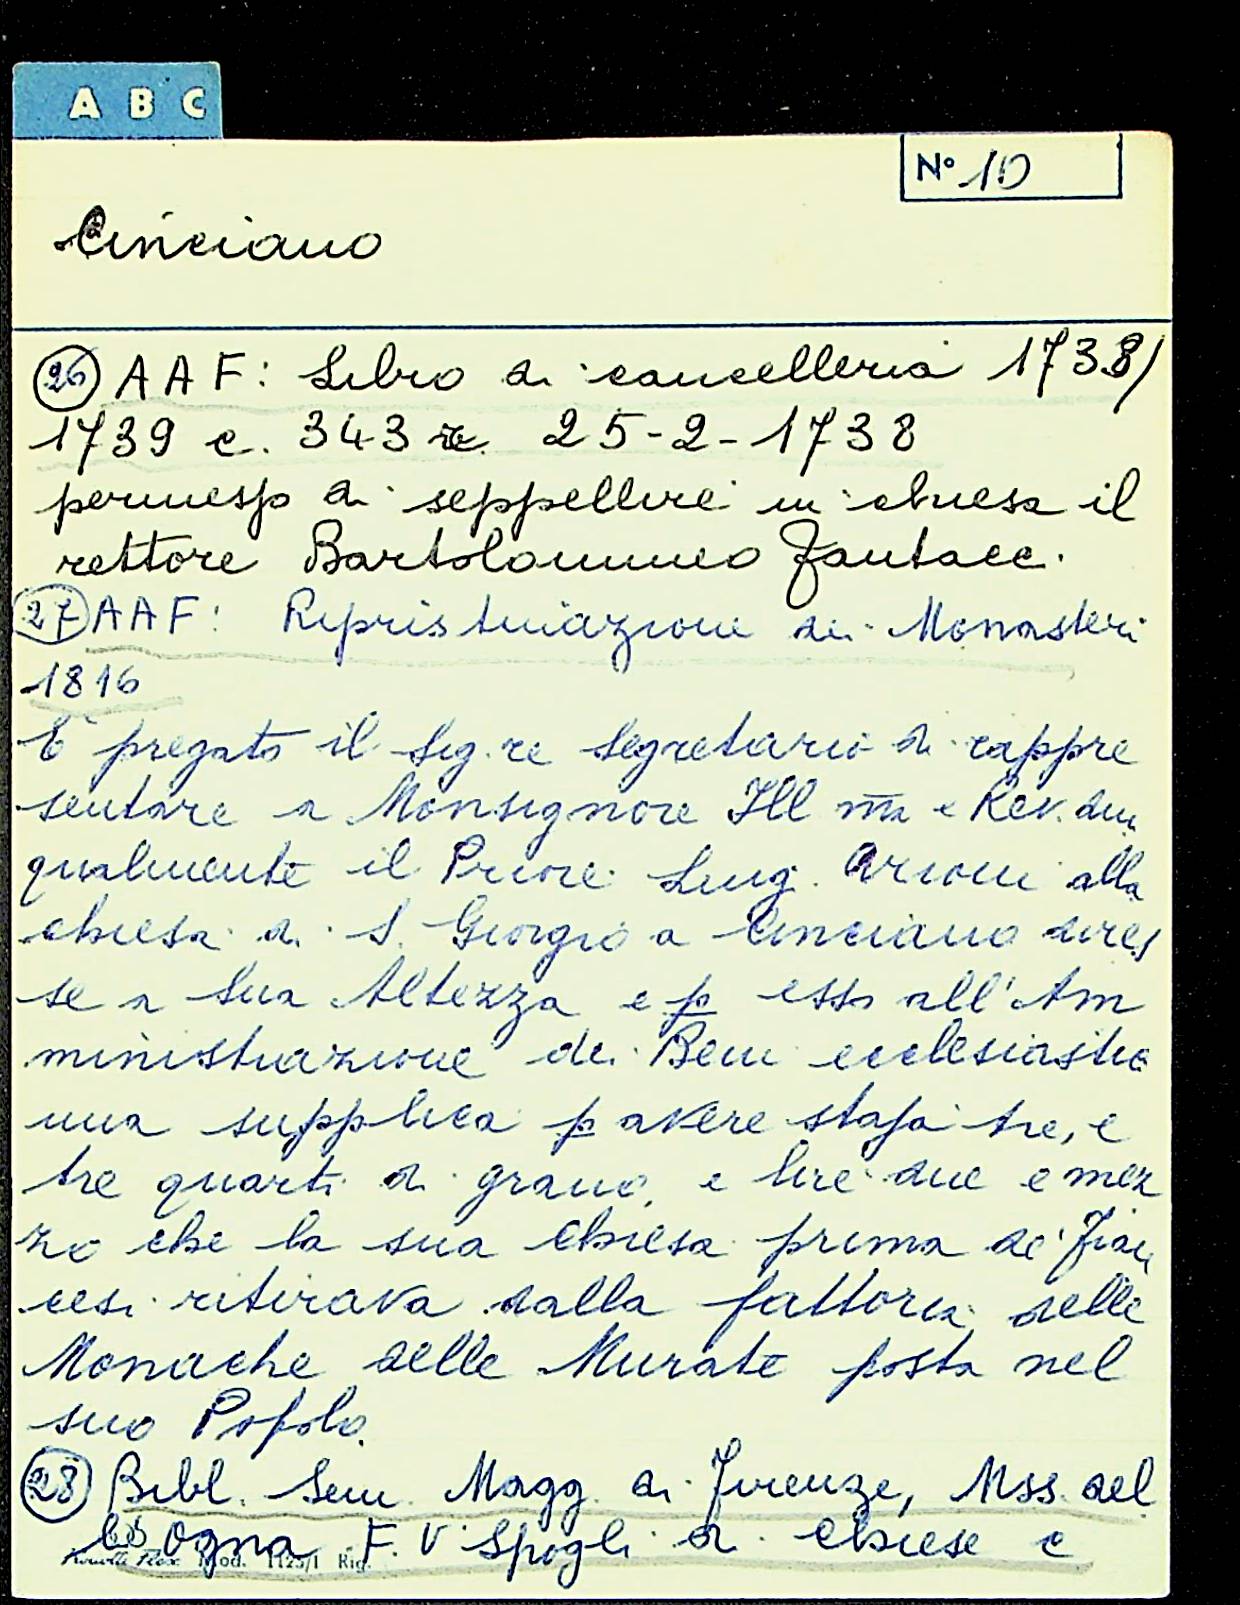 A B C
N° 10
Cinciano
26 AAF: Libro di cancelleria 1738/
1739 c. 343 25-2-1738
permesso di seppellire in chiesa il
rettore Bartolommeo Fantacc.
27 AAF: Ripristinazione dei Monasteri
1816
E' pregato il Sig.re Segretario di rappre
sentare a Monsignore Ill m̅a e Rev.
qualmente il Priore Luig. Arioni alla
chiesa di S. Giorgio a Cinciano dires
se a Sua Altezza e p esso all'Am
ministrazione dei Beni ecclesiastici
una supplica p avere staja tre, e
tre quarti di grano, e lire due e mez
zo che la sua chiesa prima de' Fran
cesi ritirava dalla fattoria delle
Monache delle Murate posta nel
suo Popolo.
28 Bibl. Sem. Magg. di Firenze, Mss. del
Bologna F. V Spogli di chiese e
Mod. 1125/1 Rig.